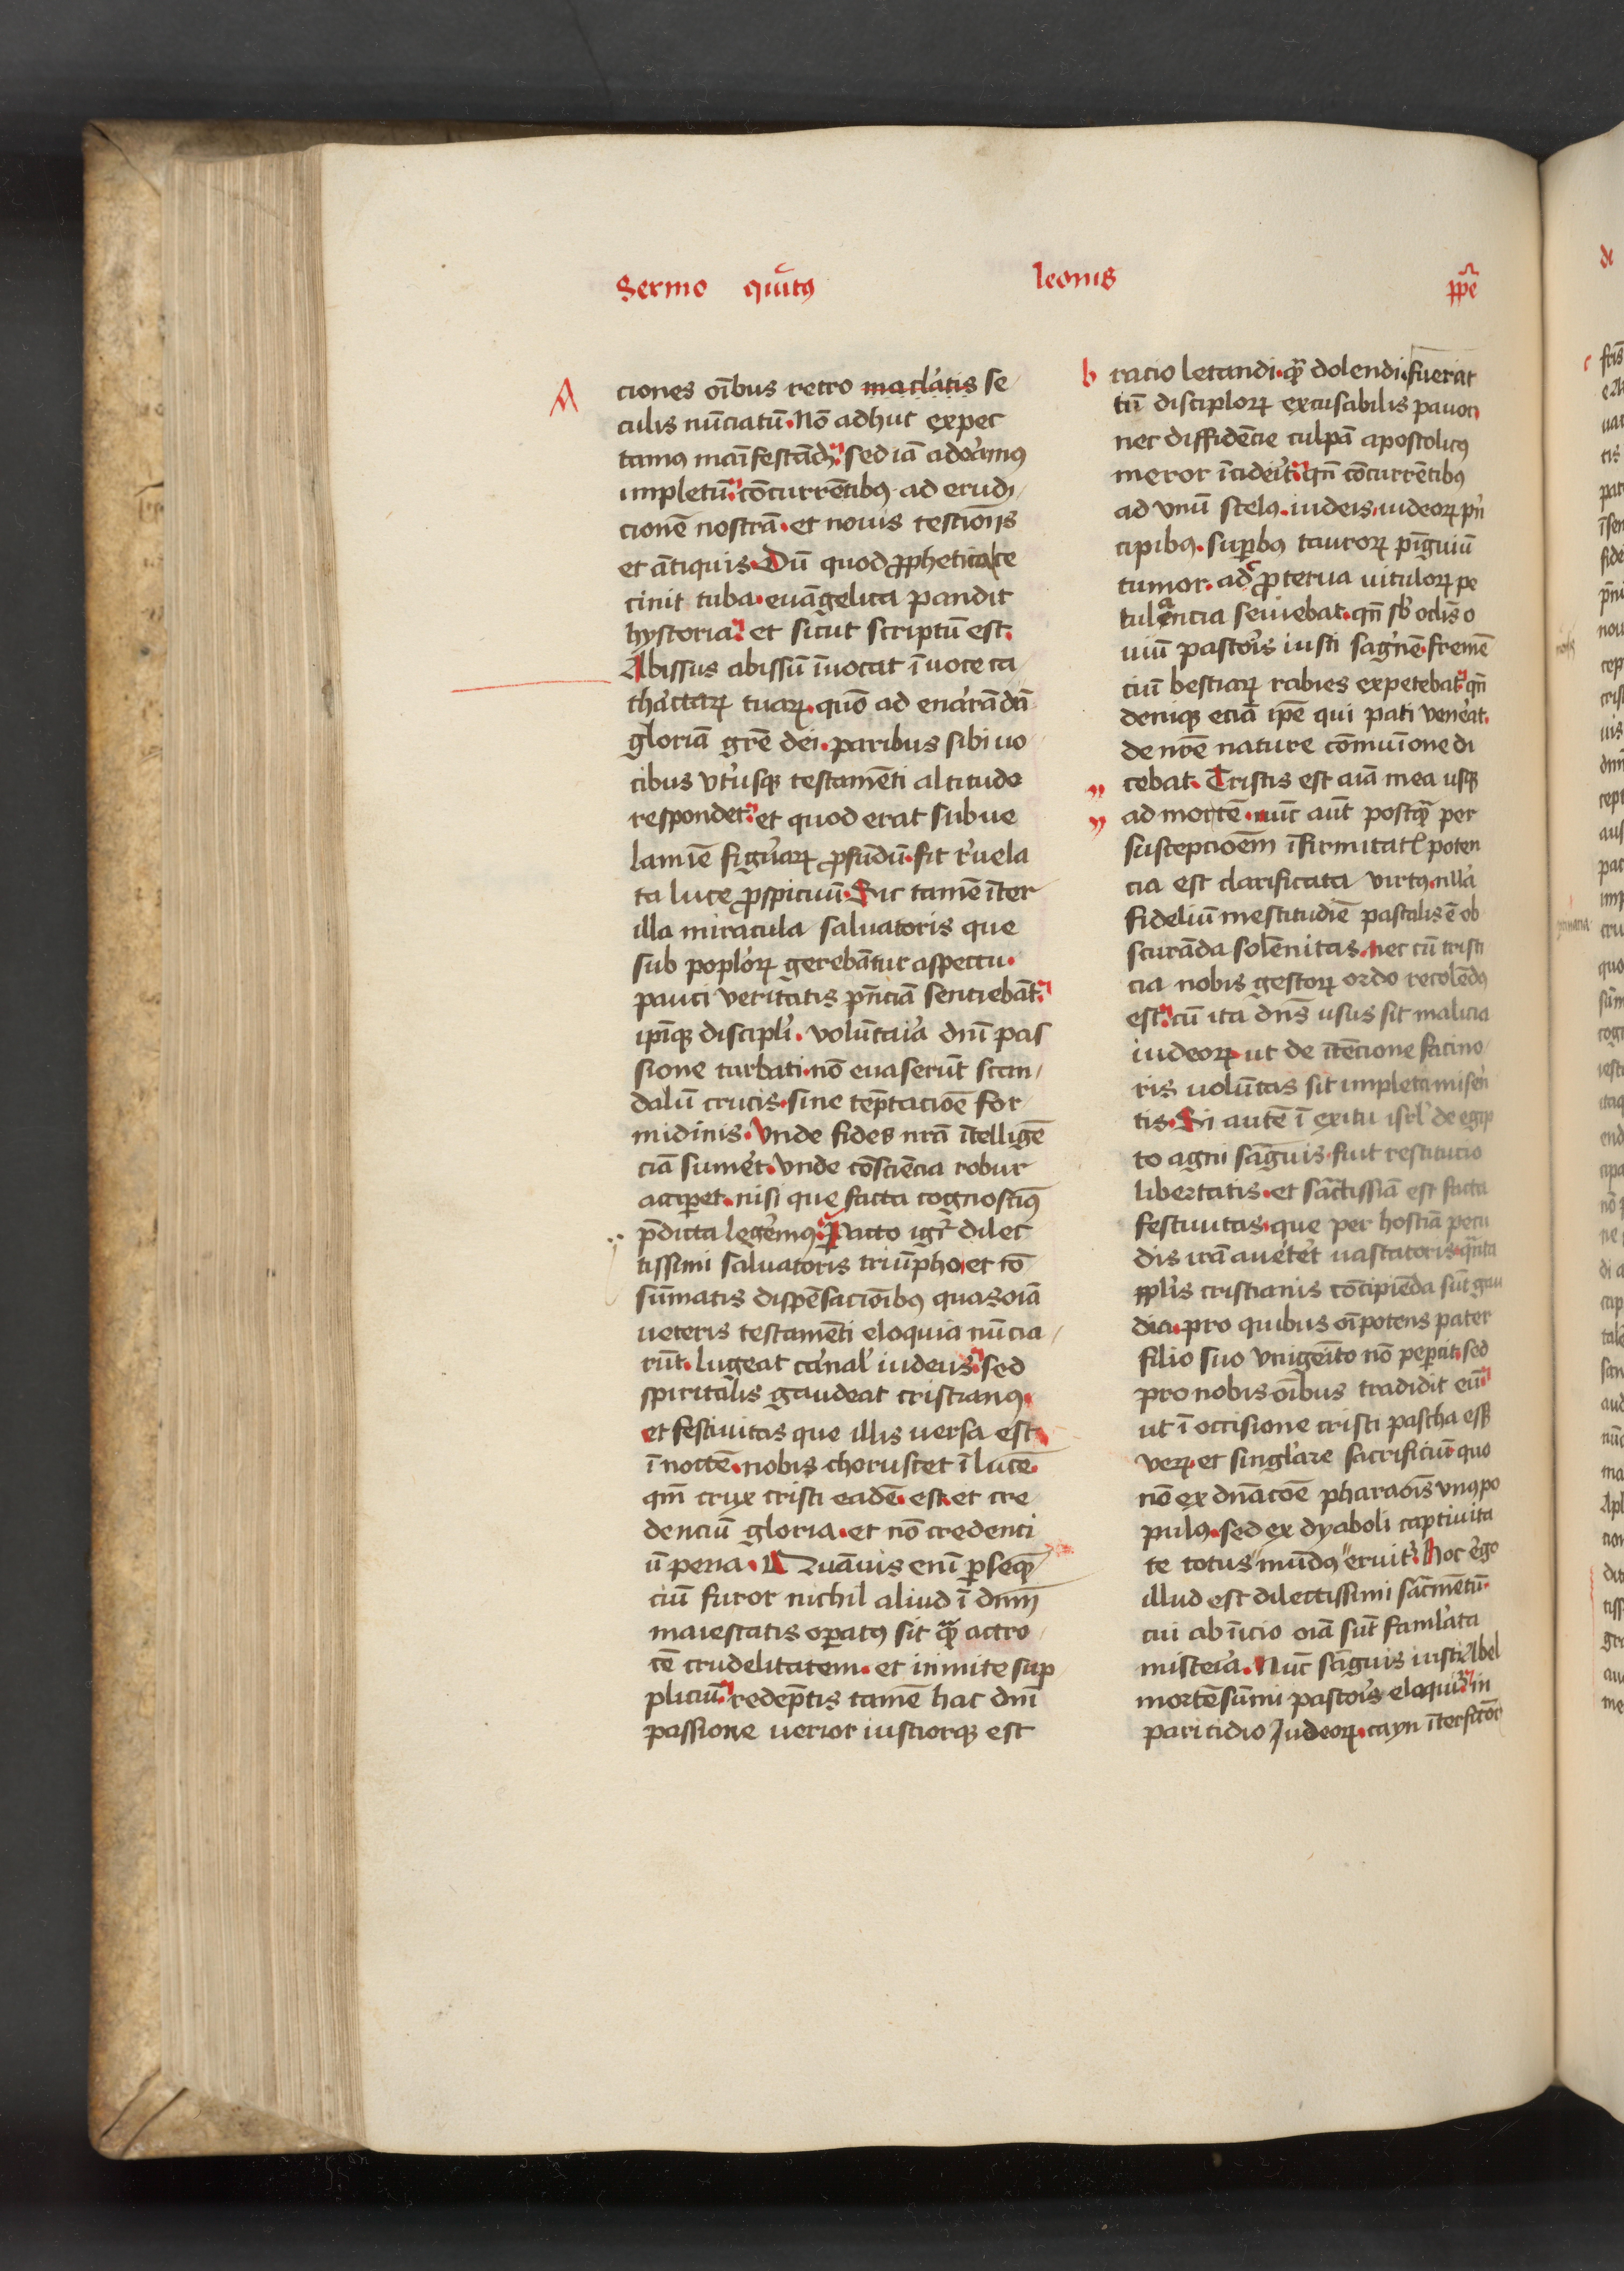 Sermo quītꝯ leonis ꝑpe
A
ciones oībus retro maclatis se
culis nūciatū. Nō adhuc expec
tamꝯ manifestādū. sed iā adoramꝯ
impletū. cōcurrētibꝯ ad erudi
cionē nostrā. et novis testiōiis
et ātiquis. Dū quod ꝓphetica ce
cinit tuba. evāgelica pandit
hystoria. et sicut scriptū est.
Abissus abissū īvocat ī voce ca
thactarꝝ tuarꝝ. quō ad enarādā
gloriā grē dei. paribus sibi vo
cibus utriusqꝫ testamēti altitudo
respondet. et quod erat sub ve
lamīe figurarꝝ ꝓfūdū. fit revela
ta luce ꝓspicuū. Sic tamē īter
illa miracula salvatoris que
sub poplorꝝ gerebātur aspectu.
pauci veritatis pn̄ciā sentiebāt.
ipīqꝫ discipli. volūtaria dnī pas
sione turbati. nō evaserūt scan
dalū crucis. sine tēptacioē for
midinis. Unde fides nrā ītelligē
ciā sumeret. Unde cōsciēcia robur
acciꝑet. nisi que facta cognoscimꝯ
p̄dicta legeremꝯ. Pacto igr̄ dilec
tissimi salvatoris triūpho. et cō
sūmatis dispēsaciōibꝯ quas oīa
veteris testamēti eloquia nūcia
rūt. lugeat carnal' iudeus. sed
spiritalis gaudeat cristianꝯ.
et festivitas que illis versa est
ī noctē. nobis choruscet ī lucē.
qm̄ crux cristi eadē est. et cre
denciū gloria. et nō credenti
ū pena. Quāvis enī ꝑseqē
ciū furor nichil aliud ī dnm̄
maiestatis oꝑatꝯ sit qꝫ actro
cē crudelitatem. et inmite sup
pliciū. redēptis tamē hac dnī
passione verior iustiorqꝫ est
b racio letandi. qꝫ dolendi. fuerat
tū disciplorꝝ excusabilis pavor.
nec diffidēcie culpā apostolicꝯ
meror īcideīt. qn̄ cōcurrētibꝯ
ad unū scelꝯ. iudeis. iudeorꝝ pn̄
cipibꝯ. suꝑbꝯ taurorꝝ pīguiū
tumor. ac ꝓterva vitulorꝝ pe
tulancia seviebat. qn̄ sb' oclis o
viū pastoris iusti sāgnē. fremē
ciū bestiarꝝ rabies expetebat. qn̄
deniqꝫ eciā ipē qui pati venerat.
de nrē nature cōmuīone di
cebat. Tristis est aīā mea usqꝫ
ad mortē. nūc aūt postqꝫ per
suscepcioēm īfirmitatꝭ poten
cia est clarificata virtꝯ. nlla
fidelīū mestitudīe pascalis ē ob
scurāda solēnitas. nec cū tristi
cia nobis gestorꝝ ordo recolēdꝯ
est. cū ita dn̄s usus sit malicia
iudeorꝝ. ut de ītēcione facino
ris volūtas sit impleta miseri
tis. Si autē ī exitu isrl' de egip
to agni sāguis. fuit restitucio
libertatis. et sāctissīā est facta
festivitas. que per hostiā pecu
dis irā averteret vastatoris. qnta
pplis cristianis cōcipiēda sūt gau
dia. pro quibus oīpotens pater
filio suo unigeīto nō peꝑcit. sed
pro nobis oībus tradidit eū.
ut ī occisione cristi pascha esset
verꝝ. et singlare sacrificiū. quo
nō ex dnācōe pharaōis unꝯ po
pulꝯ. sed ex dyaboli captivita
te totus mūdꝯ eruīt. Hoc ergo
illud est dilectissimi sācmētū.
cui ab īicio oīā sūt famlata
misteria. Nūc sāguis iusti Abel
mortē sūmi pastoris eloquīt. in
paricidio Iudeorꝝ. cayn īterfitōr